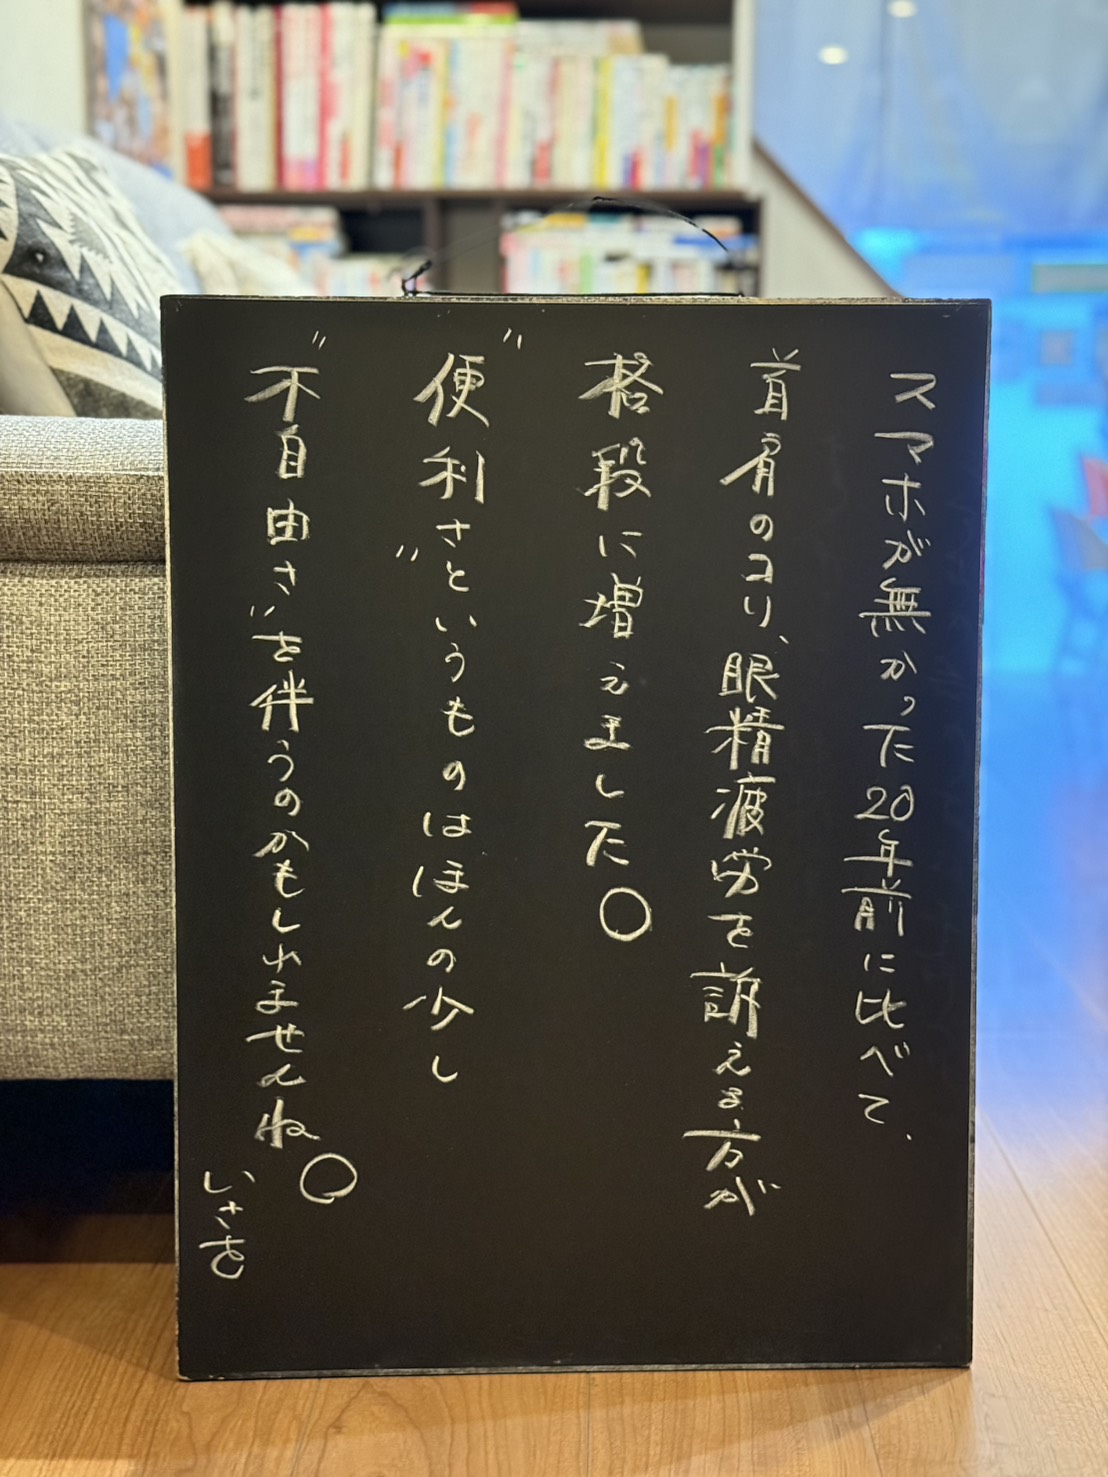 スマホが無かった20年前に比べて、
首肩のコリ、眼精疲労を訴える方が
格段に増えました。
"便利さ"というものはほんの少し
"不自由さ"を伴うのかもしれませんね。
いさを